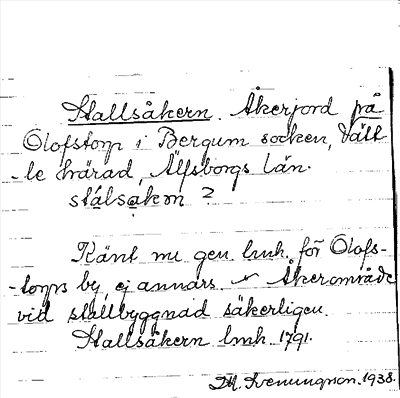 Stallsåkern. Åkerjord på
Olofstorp i Bergum socken, Vätt-
-le härad, Älfsborgs län.
stålsakɐn ?
Känt nu gen. lmh. för Olofs-
-torps by, ej annars. Åkerområde
vid stallbyggnad säkerligen.
Stallsåkern lmh. 1791.
M. Svenungson. 1938.